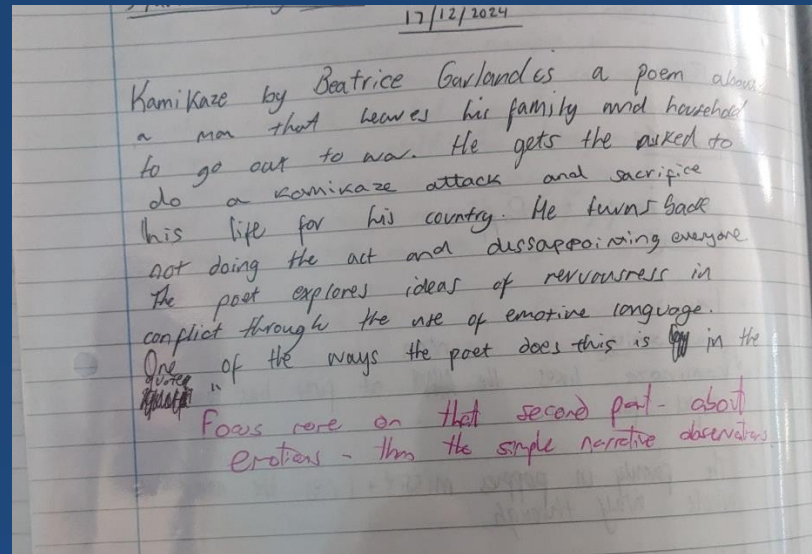 17/12/2024
Kamikaze by Beatrice Garland is a poem about
a man that leaves his family and household
to go out to war. He gets the asked to
do a kamikaze attack and sacrifice
his life for his country. He turns back
not doing the act and dissappointing everyone
The poet explores ideas of nervousness in
conflict through the use of emotive language.
One of the ways the poet does this is in the
quotes "
Focus more on that second part - about
emotions - than the simple narrative observations